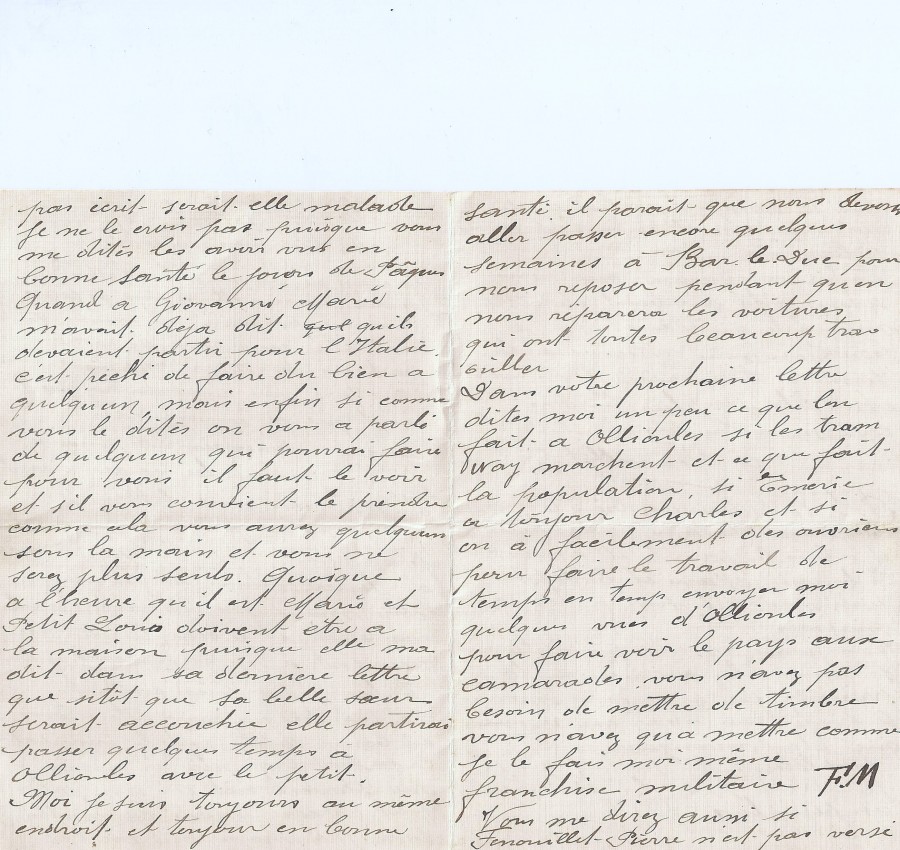 pas écrit serait elle malade
Je ne le crois pas puisque vous
me dités les avoir vus en
bonne santé le jours de Pâques
Quand a Giovanni Marie
m'avait déja dit quel quils
devaient partir pour l'Italie.
c'est péché de faire du bien a
quelquun, mais enfin si comme
vous le dités on vous a parlé
de quelquun qui pourrai faire
pour vous il faut le voir
et s'il vous convient le prendre
comme cela vous aurez quelquun
sous la main et vous ne
serez plus seuls. Quoique
a l'heure qu'il est Marie et
Petit Louis doivent être a
la maison puisque elle ma
dit dans sa derniere lettre
que sitôt que sa belle sœur
serait accouchée elle partirai
passer quelques temps à
Ollioules avec le petit.
Moi je suis toujours au même
endroit et toujour en bonne
santé. il parait que nous devons
aller passer encore quelques
semaines à Bar-le-Duc pour
nous reposer pendant qu'on
nous réparera les voitures
qui ont toutes beaucoup trav
ailler
Dans votre prochaine lettre
dites moi un peu ce que l'on
fait a Ollioules si les tram
way marchent et ce que fait
la population, si Emerie
a toujour Charles et si
on à facilement des ouvriers
pour faire le travail de
temps en temp envoyer moi
quelques vues d'Ollioules
pour faire voir le pays aux
camarades vous n'avez pas
besoin de mettre de timbre
vous n'avez qu'à mettre comme
je le fais moi même
franchise militaire F.M
Vous me direz aussi si
Fenouillet Pierre n'est pas versé